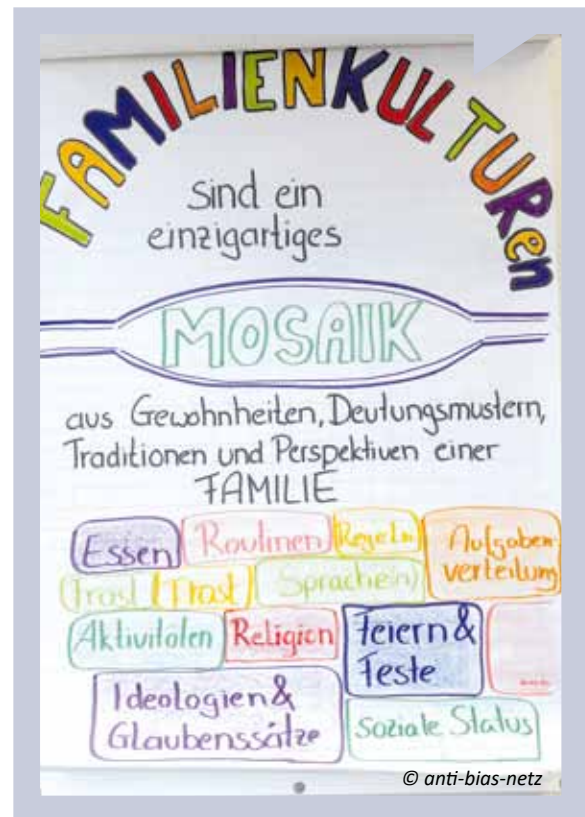 FAMILIENKULTURen
sind ein
einzigartiges
MOSAIK
aus Gewohnheiten, Deutungsmustern,
Traditionen und Perspektiven einer
FAMILIE
Essen Routinen Regeln Aufgaben-
verteilung
Trost Sprache(n)
Aktivitäten Religion Feiern &
Feste
Ideologien &
Glaubenssätze
Soziale Status
© anti-bias-netz